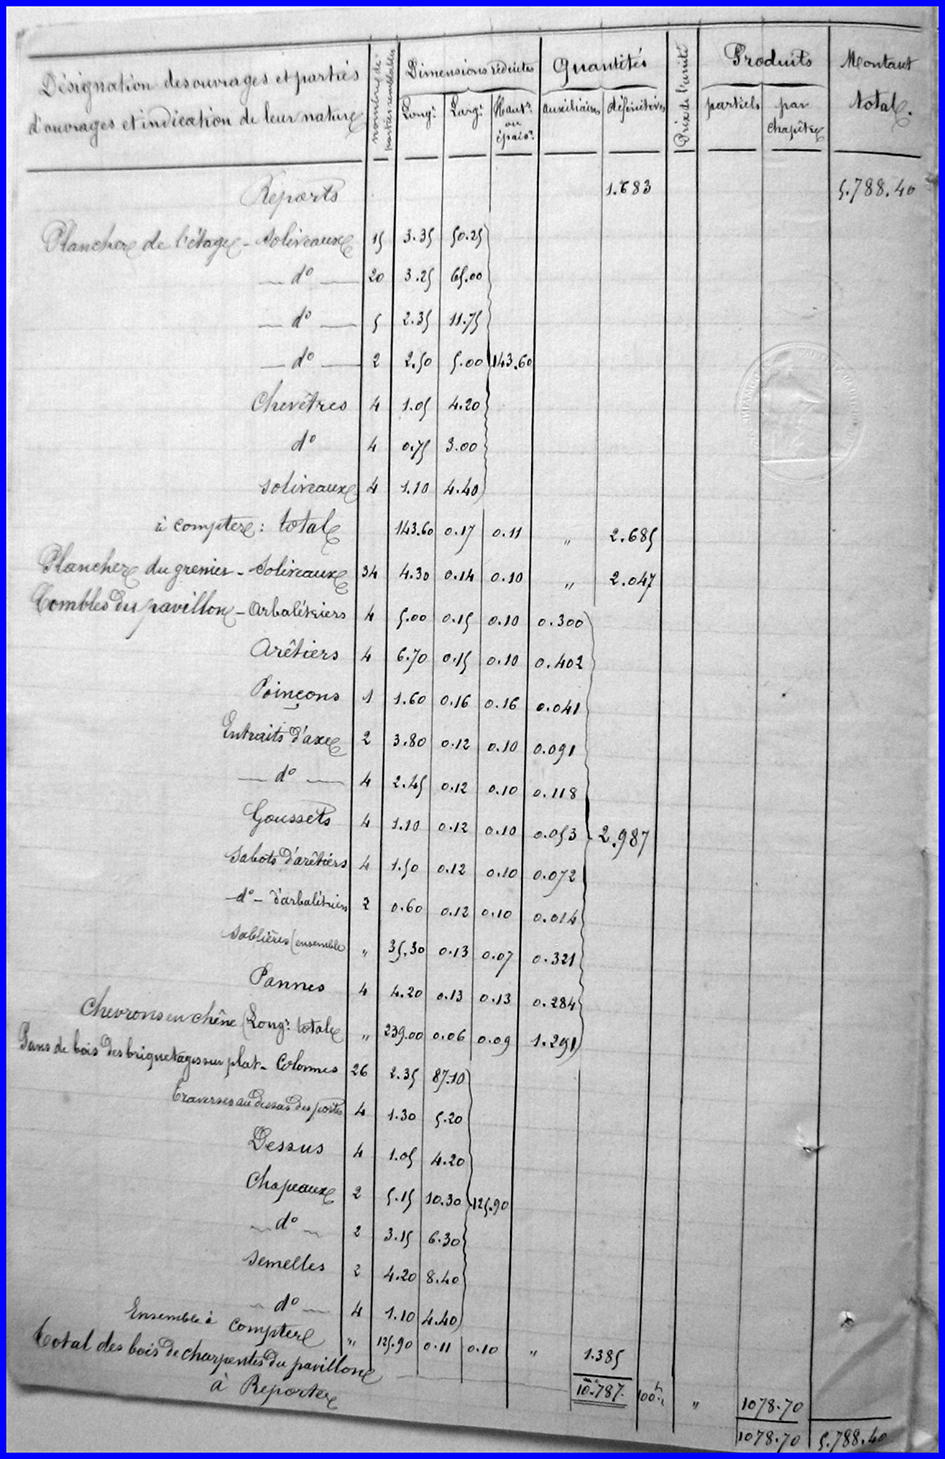 Désignation des ouvrages et parties d'ouvrages et indication de leur nature | nombre de parties semblables | Dimensions réduites | Quantités | Prix de l'unité | Produits | Montant total.
Longr. | Largr. | Hautr. ou épaisr. | auxiliaires | définitives | partiels | par chapitre
Reports 1.683 5.788.40
Plancher de l'étage - Soliveaux 15 3.35 50.25
d° 20 3.25 65.00
d° 5 2.35 11.75
d° 2 2.50 5.00 143.60
Chevêtres 4 1.05 4.20
d° 4 0.75 3.00
Soliveaux 4 1.10 4.40
à compter : total 143.60 0.17 0.11 " 2.685
Plancher du grenier - Soliveaux 34 4.30 0.14 0.10 " 2.047
Combles du pavillon - Arbalétriers 4 5.00 0.15 0.10 0.300
Arêtiers 4 6.70 0.15 0.10 0.402
Poinçons 1 1.60 0.16 0.16 0.041
Entraits d'axe 2 3.80 0.12 0.10 0.091
d° 4 2.45 0.12 0.10 0.118
Goussets 4 1.10 0.12 0.10 0.053 2.987
Sabots d'arêtiers 4 1.50 0.12 0.10 0.072
d° - d'arbalétriers 2 0.60 0.12 0.10 0.014
Sablières (ensemble " 35.30 0.13 0.07 0.321
Pannes 4 4.20 0.13 0.13 0.284
Chevrons en chêne (Longr. totale " 239.00 0.06 0.09 1.291
Pans de bois des briquetages sur plat - Colonnes 26 2.35 87.10
Traverses au dessus des portes 4 1.30 5.20
Dessus 4 1.05 4.20
Chapeaux 2 5.15 10.30 125.90
d° 2 3.15 6.30
Semelles 2 4.20 8.40
d° 4 1.10 4.40
Ensemble à compter " 125.90 0.11 0.10 " 1.385
Total des bois de charpentes du pavillon 10.787 100 " 1078.70
à Reporter 1078.70 5.788.40